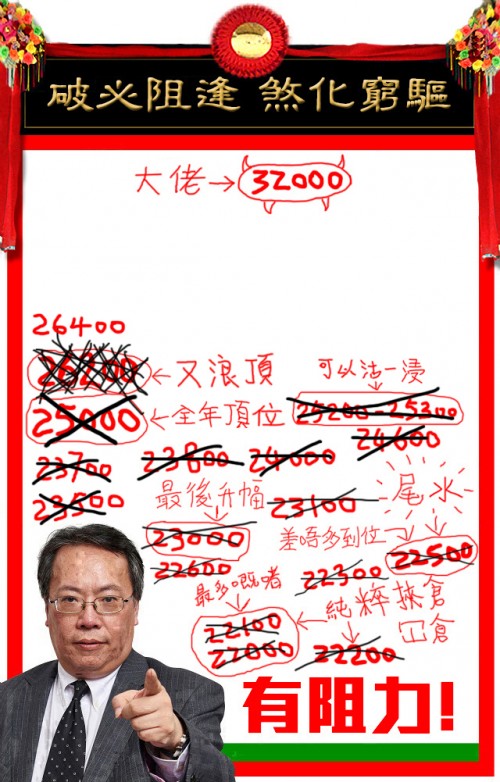 驅窮化煞 逢阻必破
大佬→32000
26400
26200←又浪頂
可以沽一浸
25000←全年頂位
25200-25300
24600
23700 23800 24000
23500
最後升幅
23100
尾水
23000
差唔多到位→22500
22600 22300
最多嘅啫
純粹挾倉
冚倉
22100
22000
22200
有阻力!